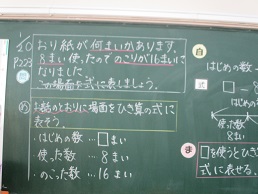 1/20
P.223
おり紙が何まいかあります。
8まい使ったので のこりが16まいに
なりました。
この場面を式に表しましょう。
め お話のとおりに場面をひき算の式に
表そう。
・はじめの数 … □まい
・使った数 … 8まい
・のこった数 … 16まい
自
はじめの数 -
式
□ - 8
はじめの数
使った数
8まい
ま
□を使うとひき
式に表せる。